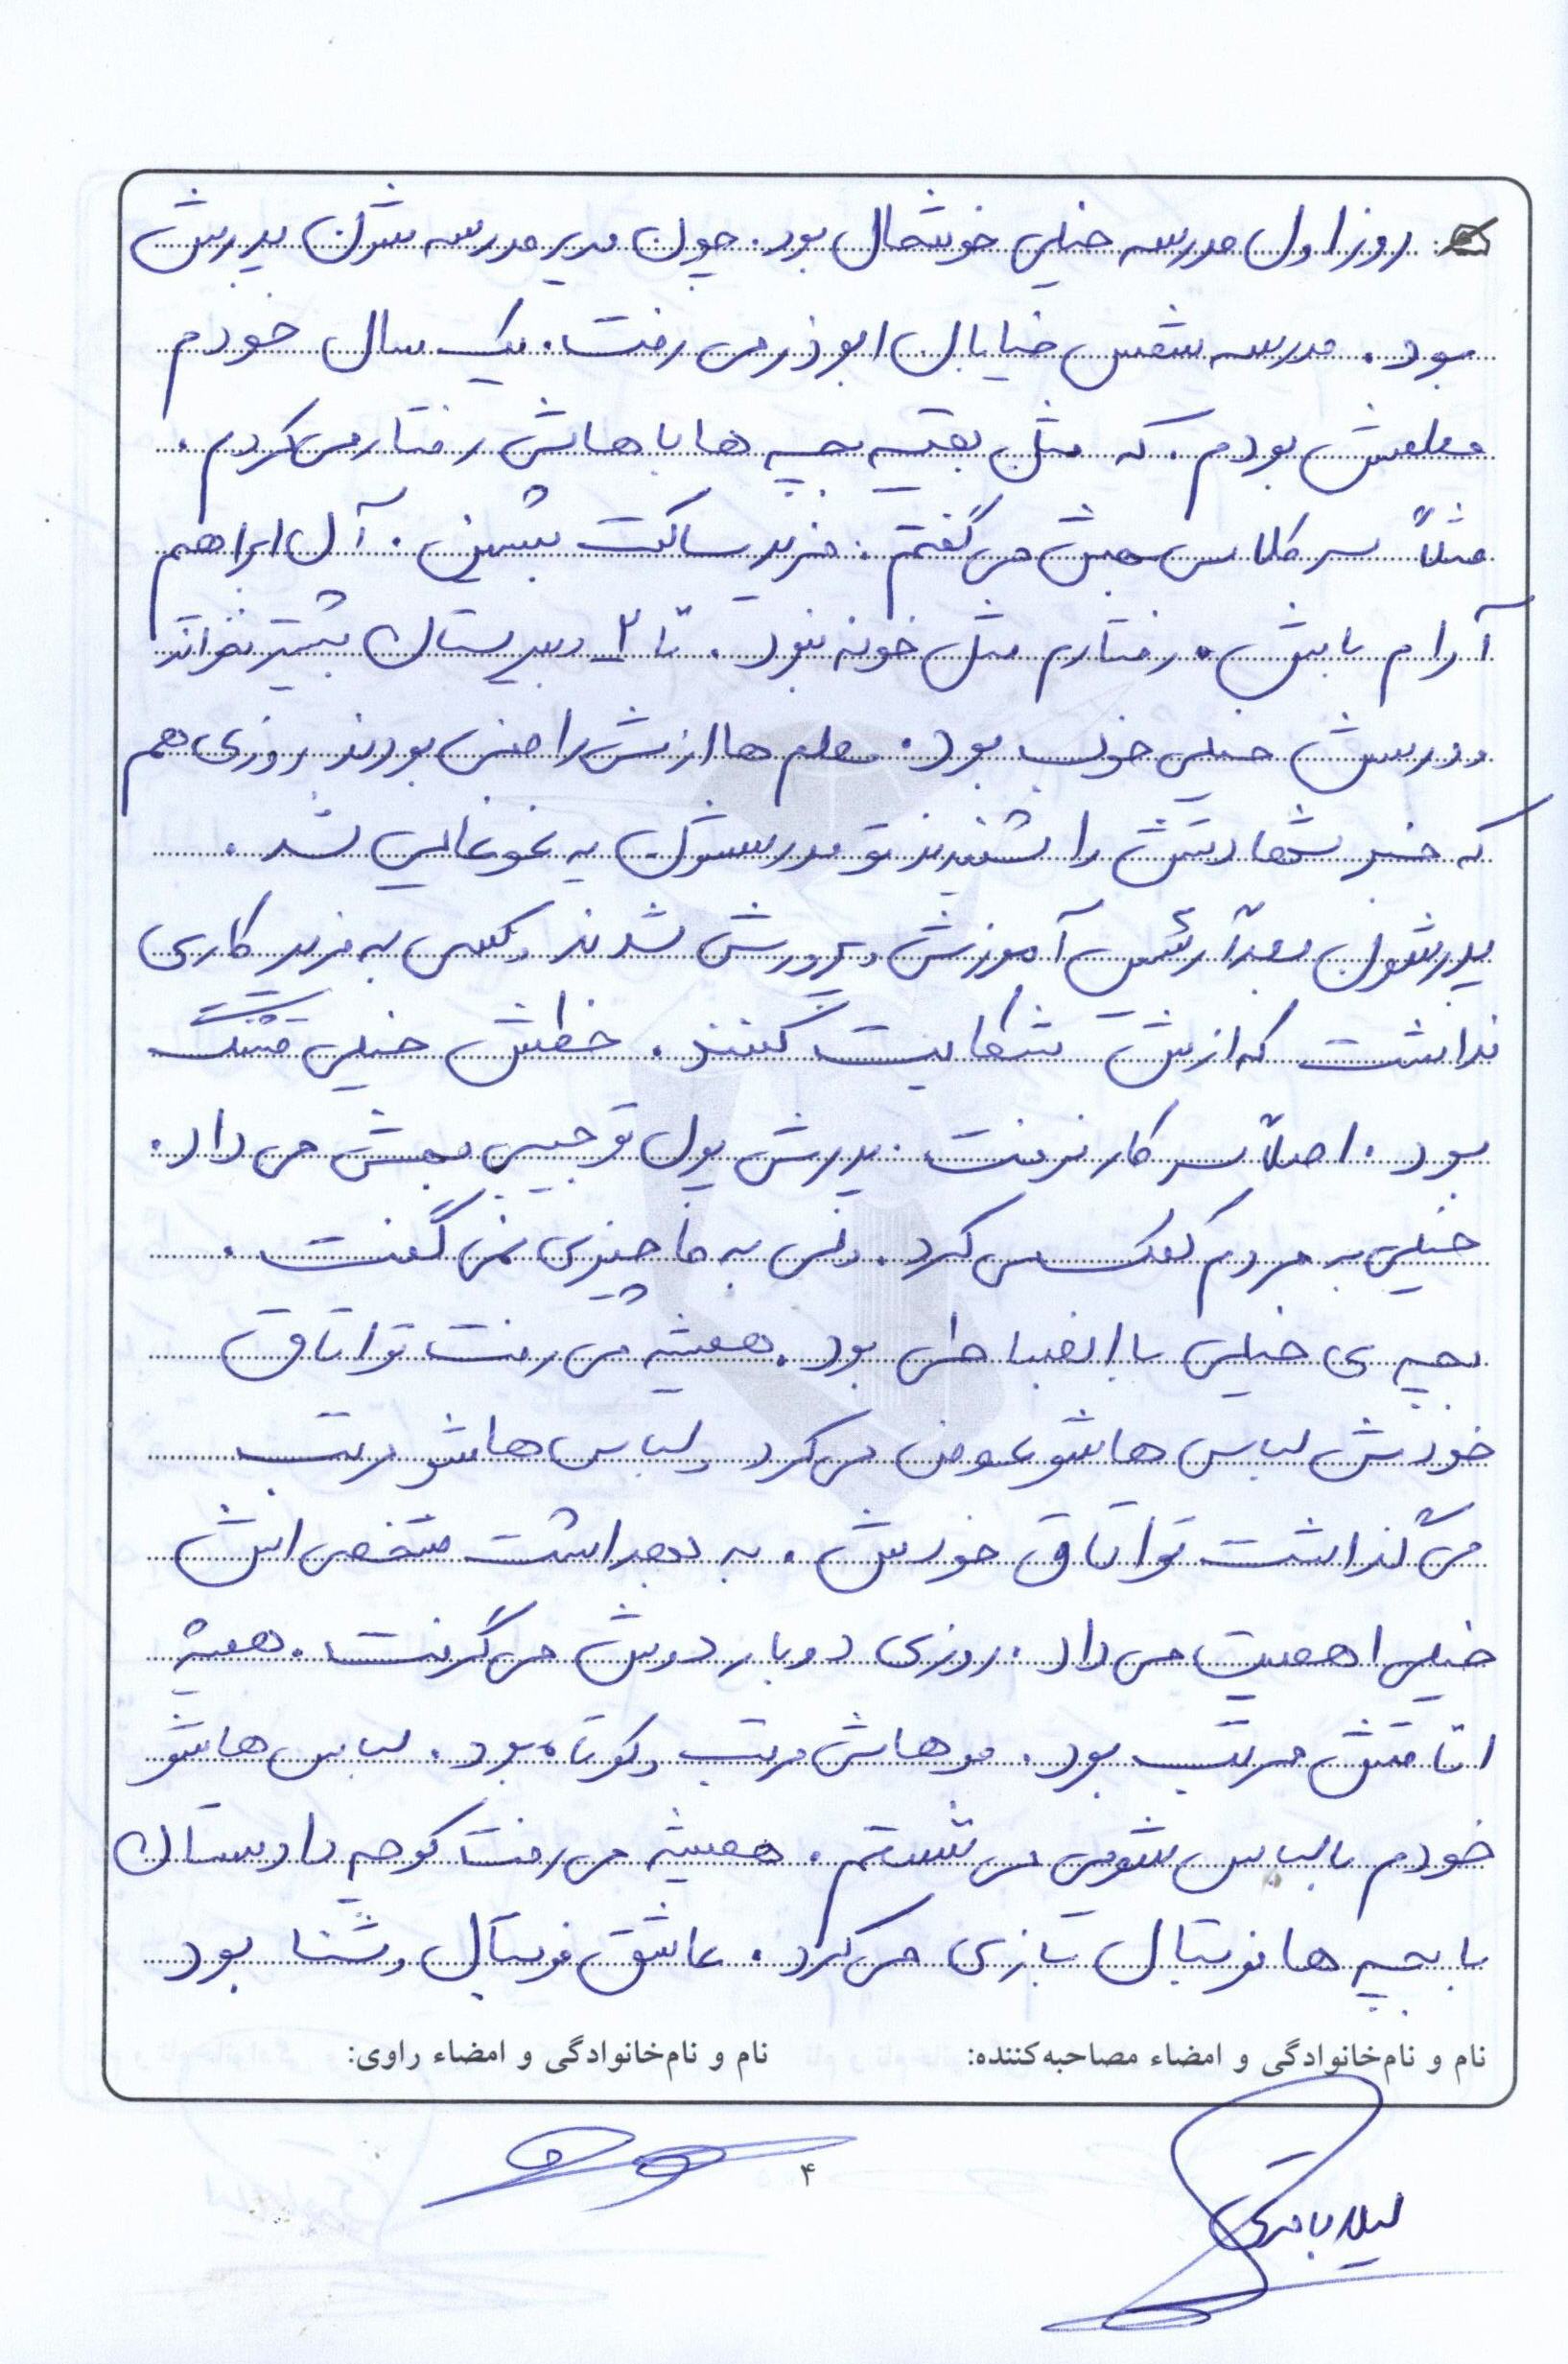 روز اول مدرسه خیلی خوشحال بود. چون مدیر مدرسه شون پدرش
بود. مدرسه شمس خیابان ابوذر می رفت. یک سال خودم
معلمش بودم. که مثل بقیه بچه ها باهاش رفتار می کردم.
مثلاً سر کلاس بهش می گفتم: فرید ساکت بشین. آل ابراهیم
آرام باش. رفتارم مثل خونه نبود. تا ۲ دبیرستان بیشتر نخواند
درسش خیلی خوب بود. معلم ها ازش راضی بودند روزی هم
که خبر شهادتش را شنیدند تو مدرسشون یه غوغایی شد.
پدرشون بعداً رئیس آموزش و پرورش شدند و کسی به فرید کاری
نداشت که ازش شکایت کنند. خطش خیلی قشنگ
بود. اصلاً سر کار نرفت. پدرش پول تو جیبی بهش می داد.
خیلی به مردم کمک می کرد. ولی به ما چیزی نمی گفت.
بچه ی خیلی با انضباطی بود. همیشه می رفت تو اتاق
خودش لباس هاشو عوض می کرد و لباس هاشو مرتب
می گذاشت تو اتاق خودش. به بهداشت شخصی اش
خیلی اهمیت می داد. روزی دو بار دوش می گرفت. همیشه
اتاقش مرتب بود. موهاش مرتب و کوتاه بود. لباس هاشو
خودم با لباس شویی می شستم. همیشه می رفت کوچه دادستان
با بچه ها فوتبال بازی می کرد. عاشق فوتبال و شنا بود
نام و نام‌خانوادگی و امضاء مصاحبه‌کننده: نام و نام‌خانوادگی و امضاء راوی:
۴
لیلا باقری